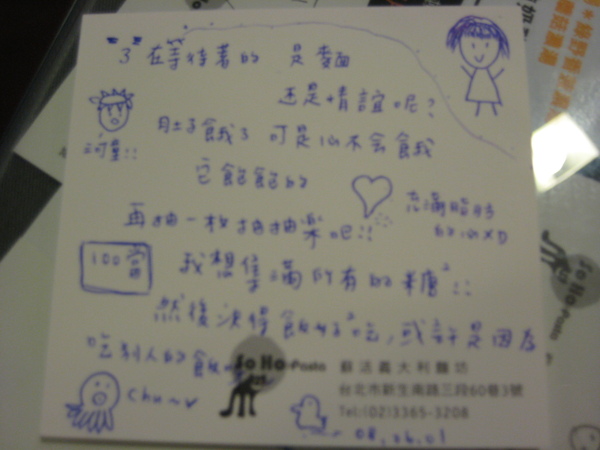 "3" 在等待著的 是麵
还是情誼呢?
肚子餓了 可是心不会餓
河童!!
它飽飽的
充滿脂肪
的心XD
再抽一枚抽抽樂吧!!
100當
我想集滿所有的糖²!!
然後決得飯好好吃,或許是因為
吃別人的飯
SoHo Pasto
蘇活義大利麵坊
台北市新生南路三段60巷3號
Tel:(02)3365-3208
chu~
08.06.01